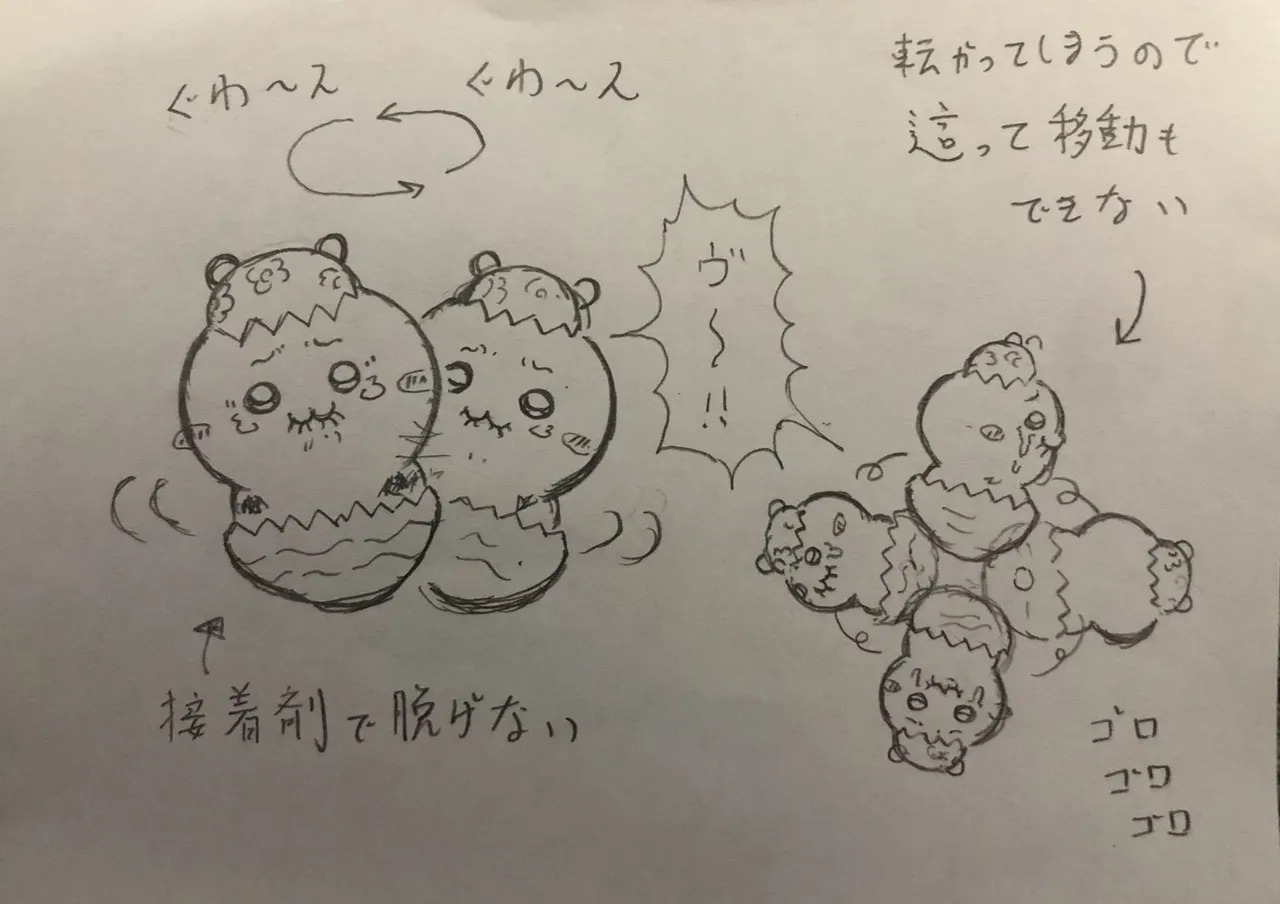 ぐわ〜ん
ぐわ〜ん
ヴ〜!!
接着剤で脱げない
転がってしまうので
這って移動も
できない
ゴロ
ゴロ
ゴロ